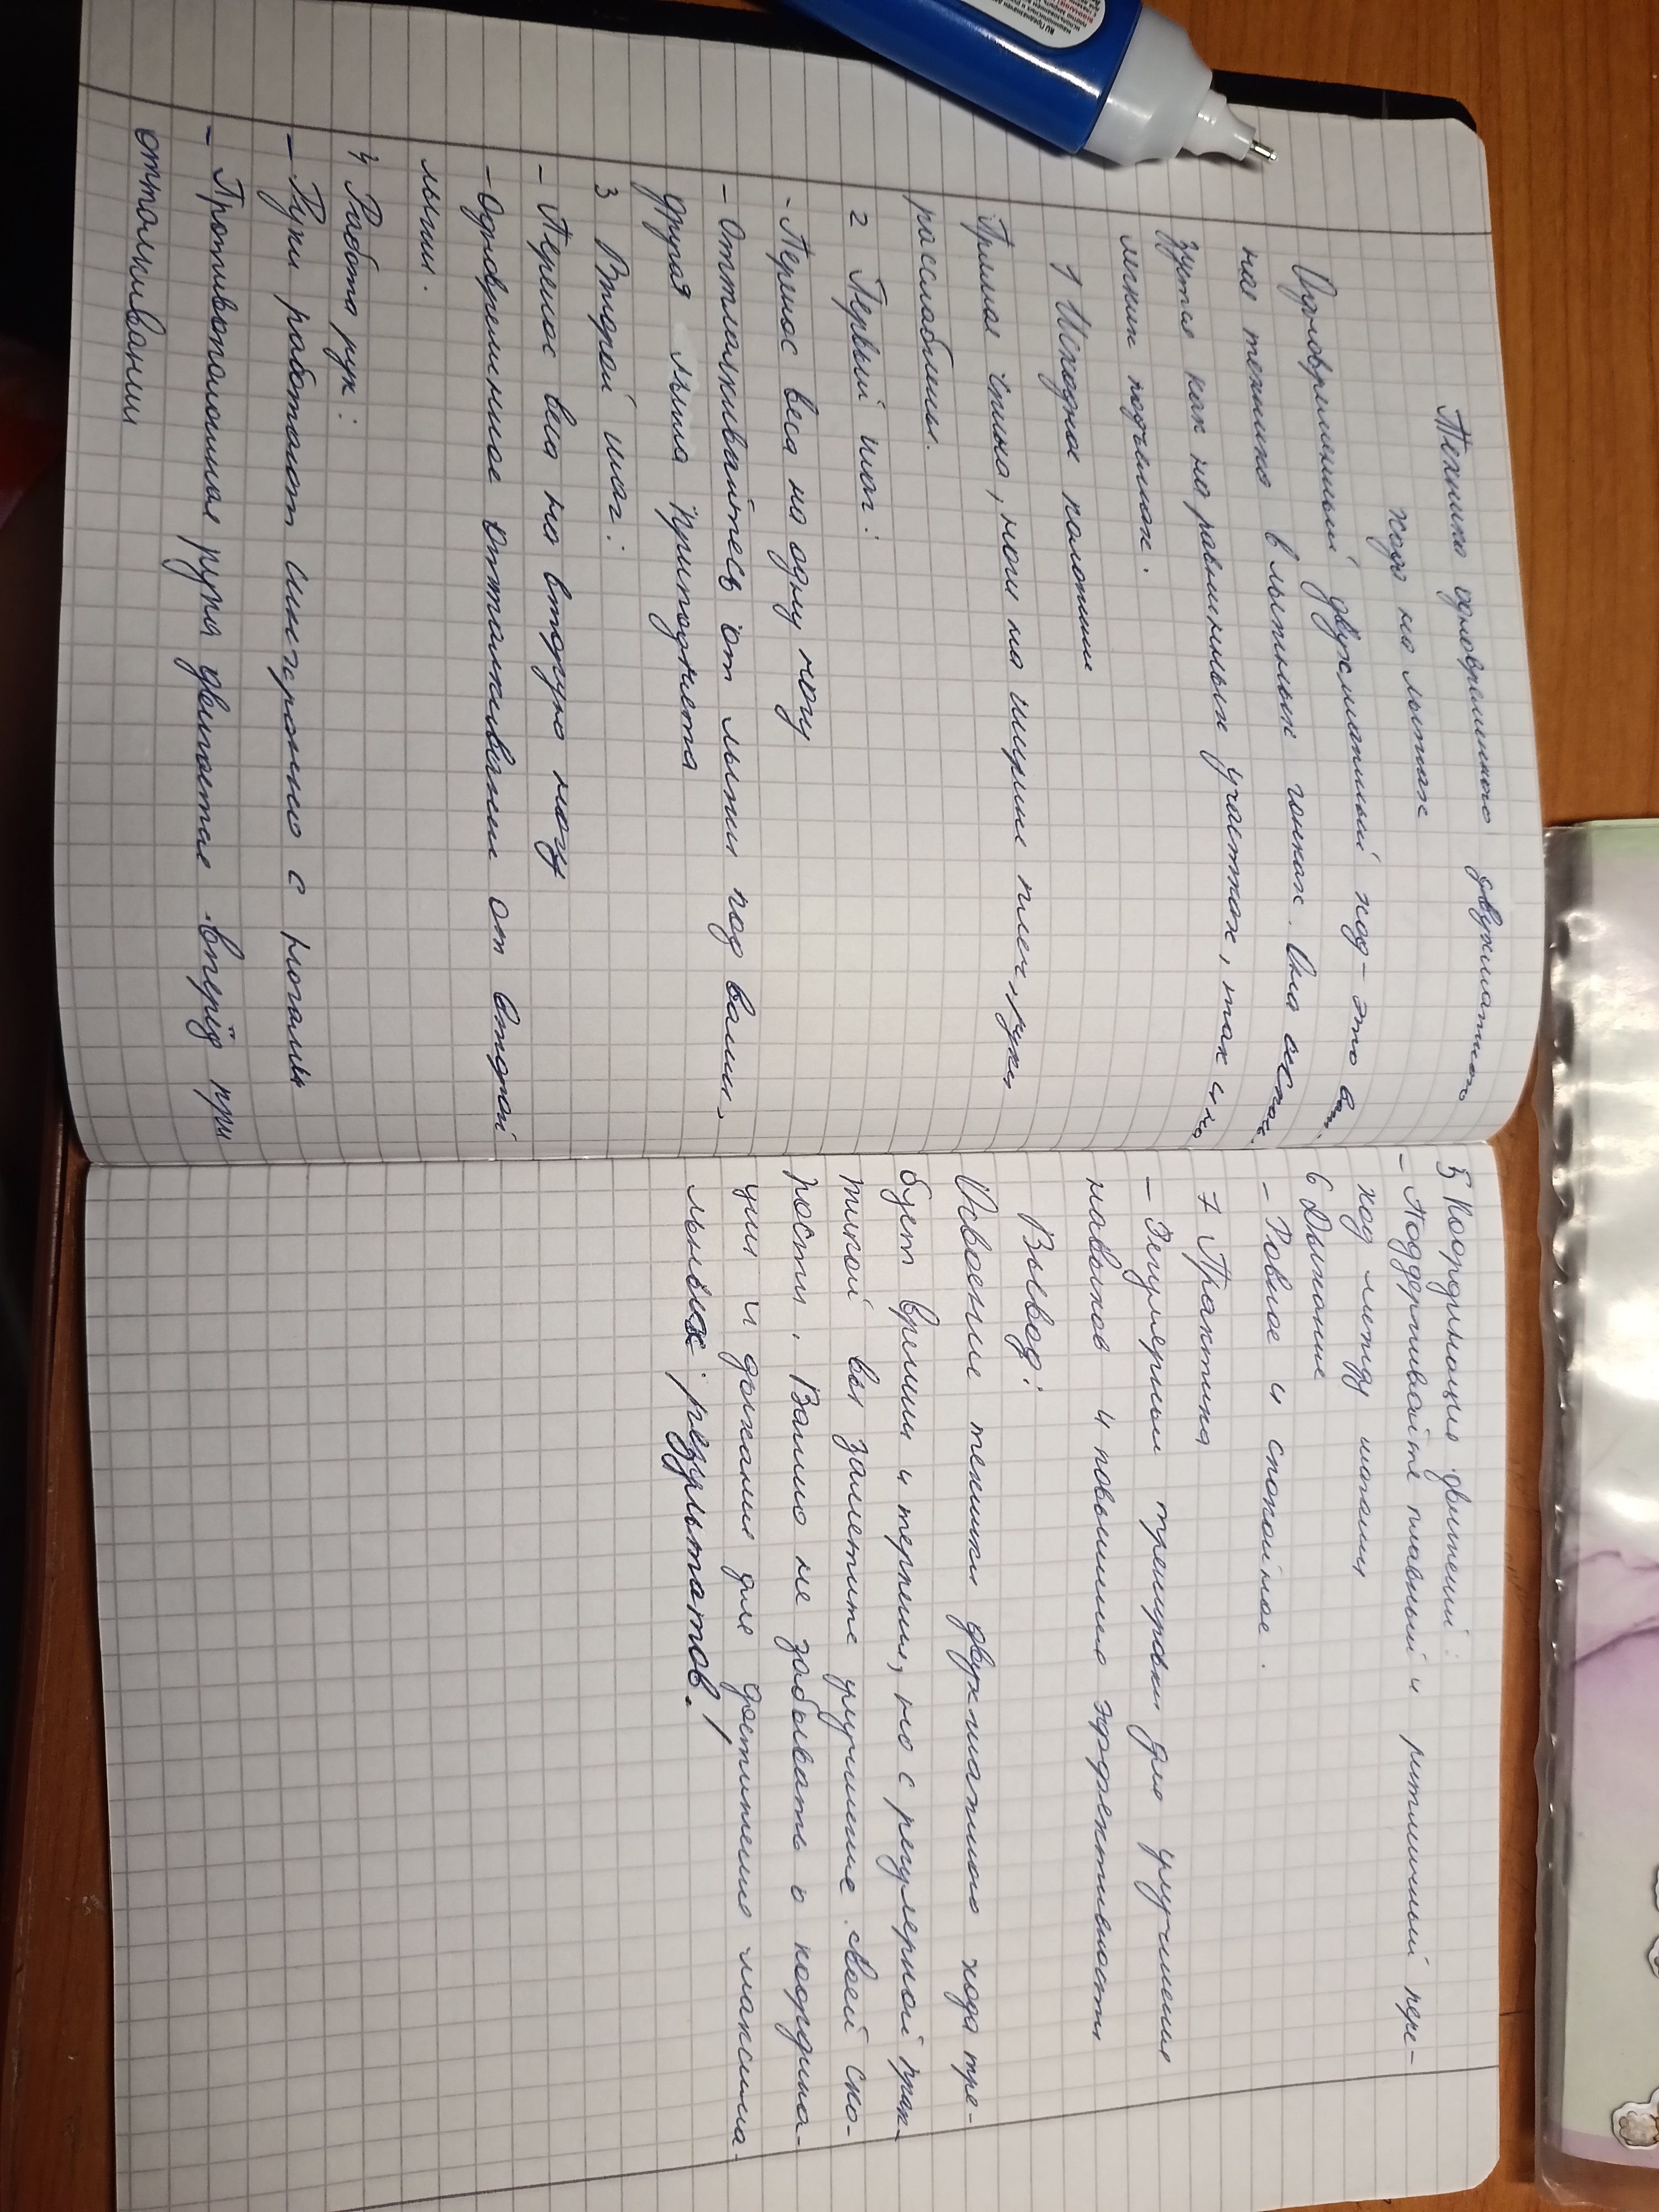 Техника одновременного двухшатного
хода на лыжах
Одновременный двухшатный ход - это важ.
ная техника в лыжных гонках. Она испол.
зуется как на равнинных участках, так и на
лёгких подъемах.
1 Исходное положение
Прямая спина, ноги на ширине плеч, руки
расслаблены.
2 Первый шаг:
- Перенос веса на одну ногу
- Отталкивайтесь от лыжи под вами,
другая лыжа приподнята
3 Второй шаг:
- Перенос веса на вторую ногу
- Одновременное отталкивание от второй
лыжи.
4 Работа рук:
- Руки работают синхронно с ногами
- Противоположная рука двигается вперёд при
отталкивании
5 Координация движений:
- Поддерживайте плавный и ритмичный пере-
ход между шагами
6 Дыхание
- Ровное и спокойное.
7 Практика
- Регулярные тренировки для улучшения
навыков и повышения эффективности
Вывод:
Освоение техники двухшатного хода тре-
бует времени и терпения, но с регулярной прак-
тикой вы заметите улучшение своей ско-
рости. Важно не забывать о координа-
ции и дыхании для достижения максима-
льных результатов!